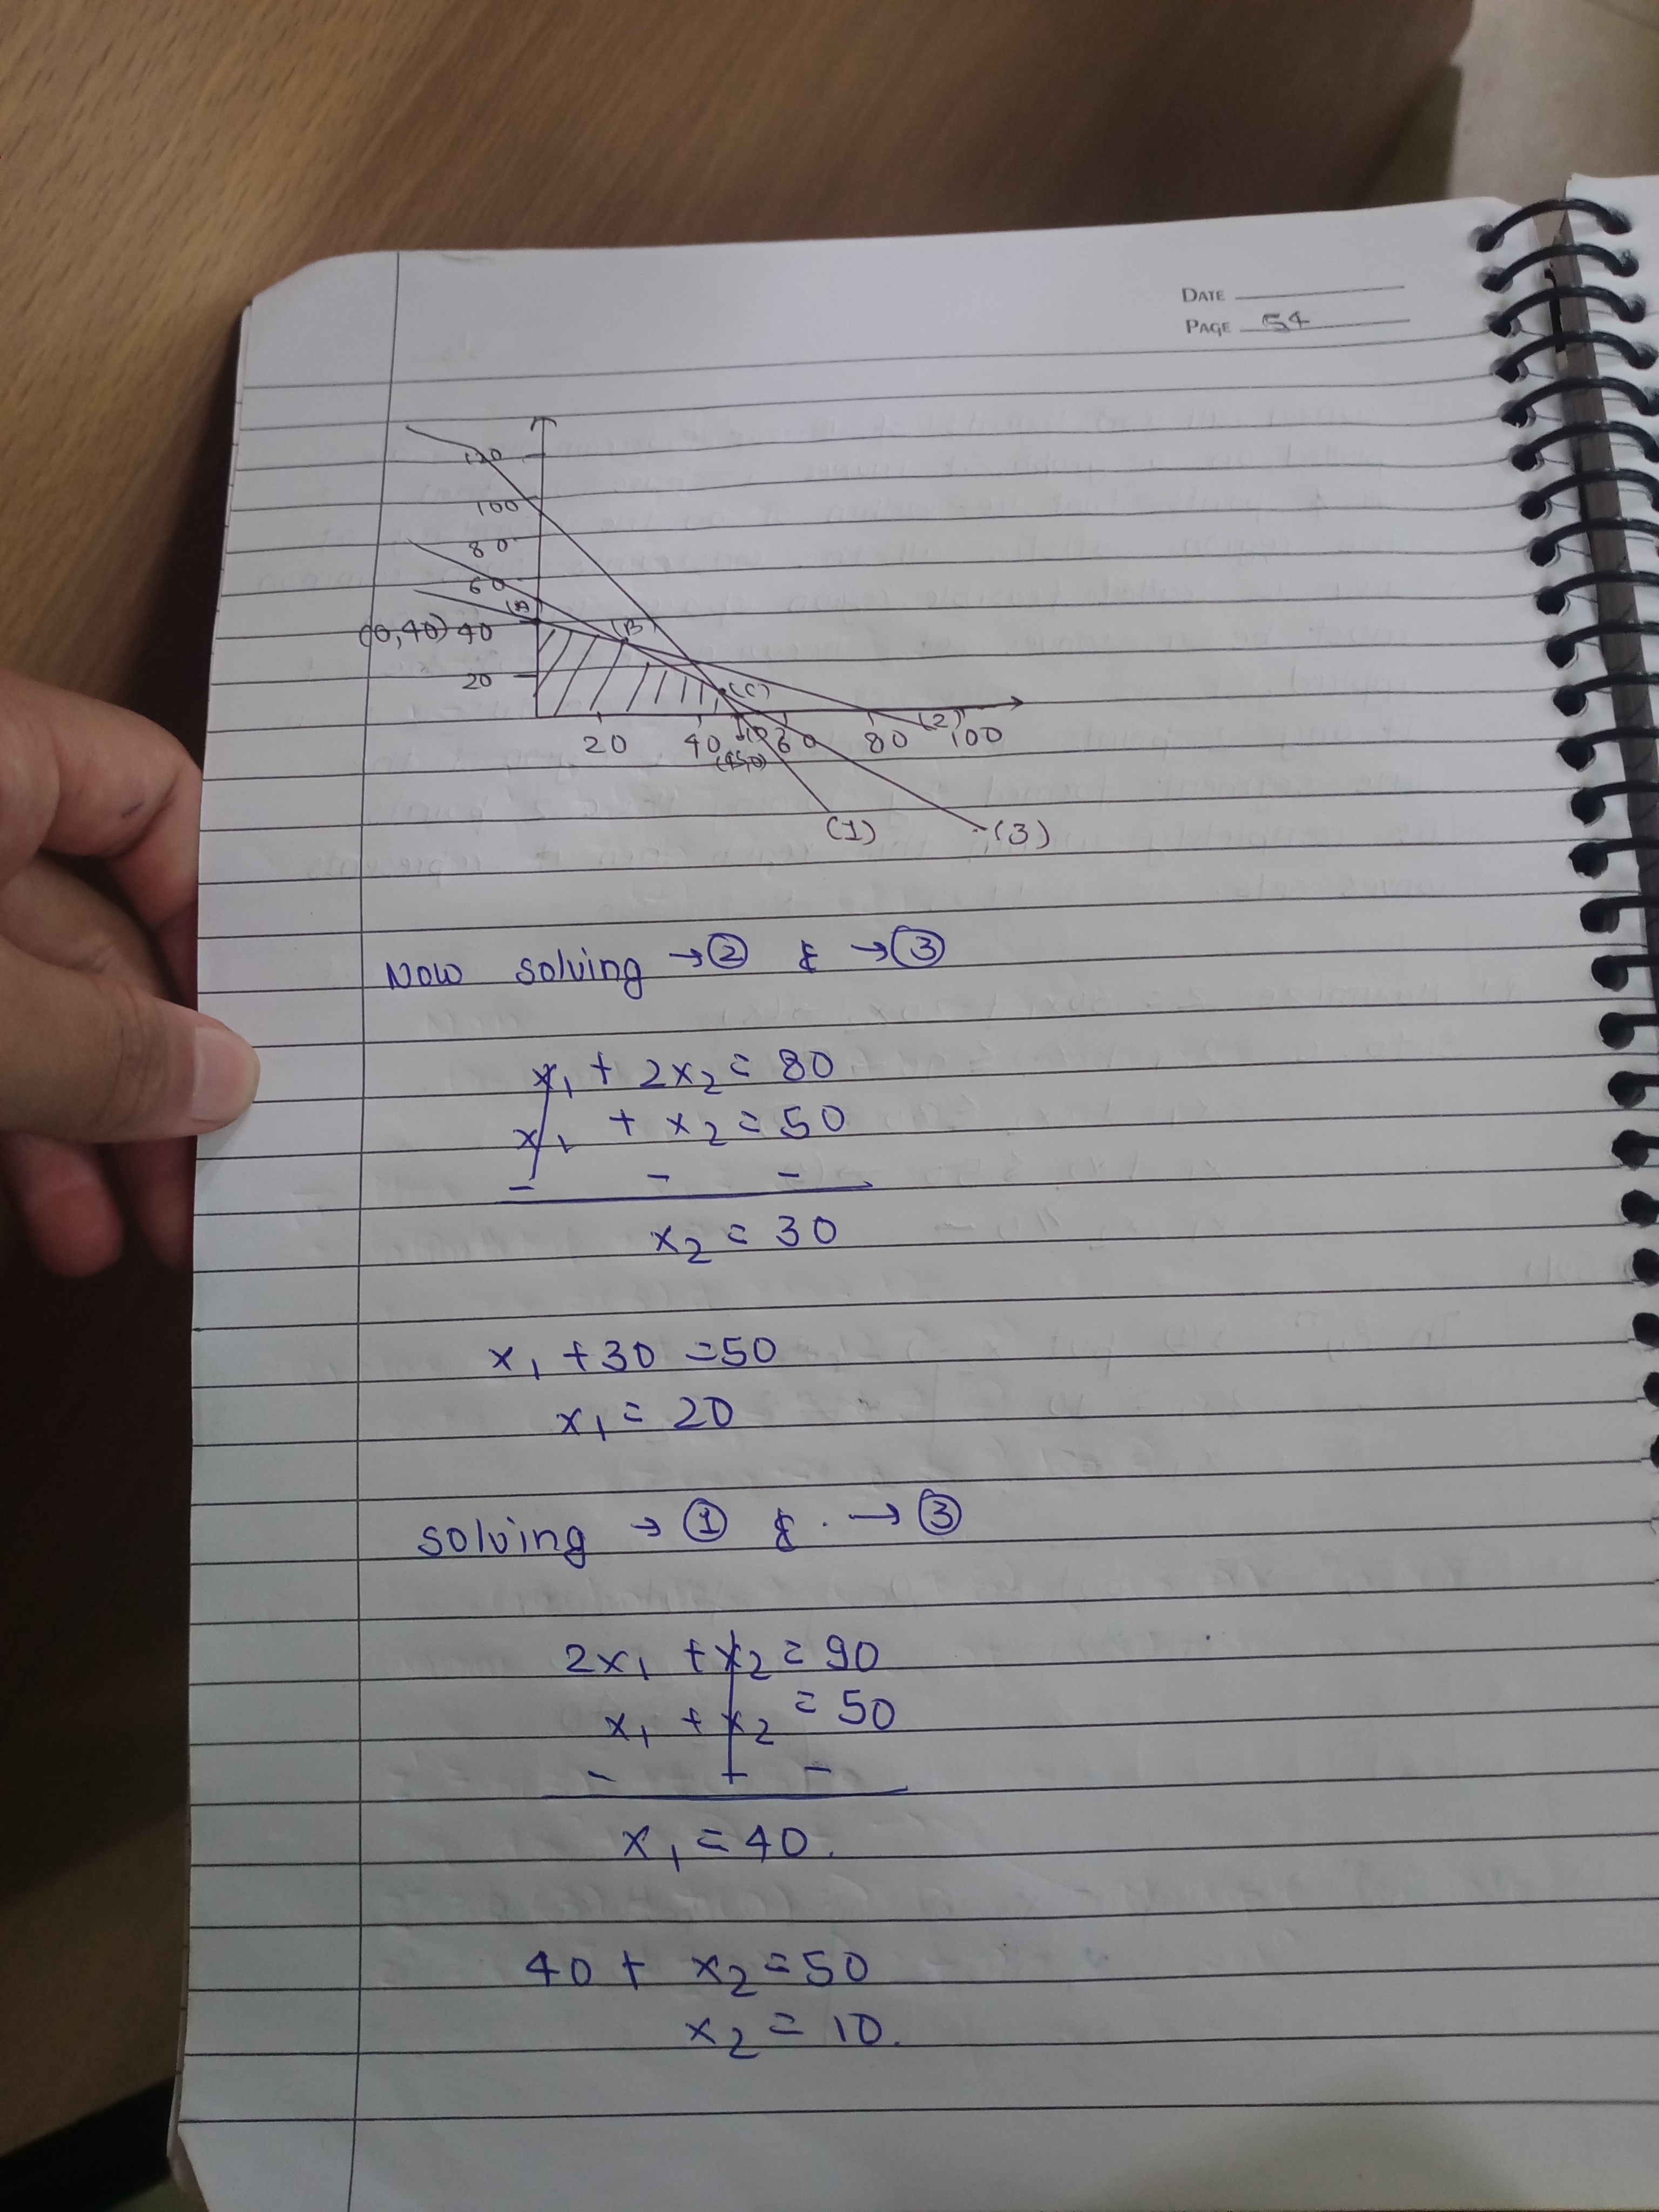 DATE
PAGE 54
120
100
80
60
(A)
(0,40) 40
(B)
20
(C)
(2)
20 40 60 80 100
(45,0)
(1)
(3)
Now solving → ② & → ③
x₁ + 2x₂ = 80
x₁ + x₂ = 50
- - -
x₂ = 30
x₁ + 30 = 50
x₁ = 20
solving → ① & . → ③
2x₁ + x₂ = 90
x₁ + x₂ = 50
- - -
x₁ = 40.
40 + x₂ = 50
x₂ = 10.